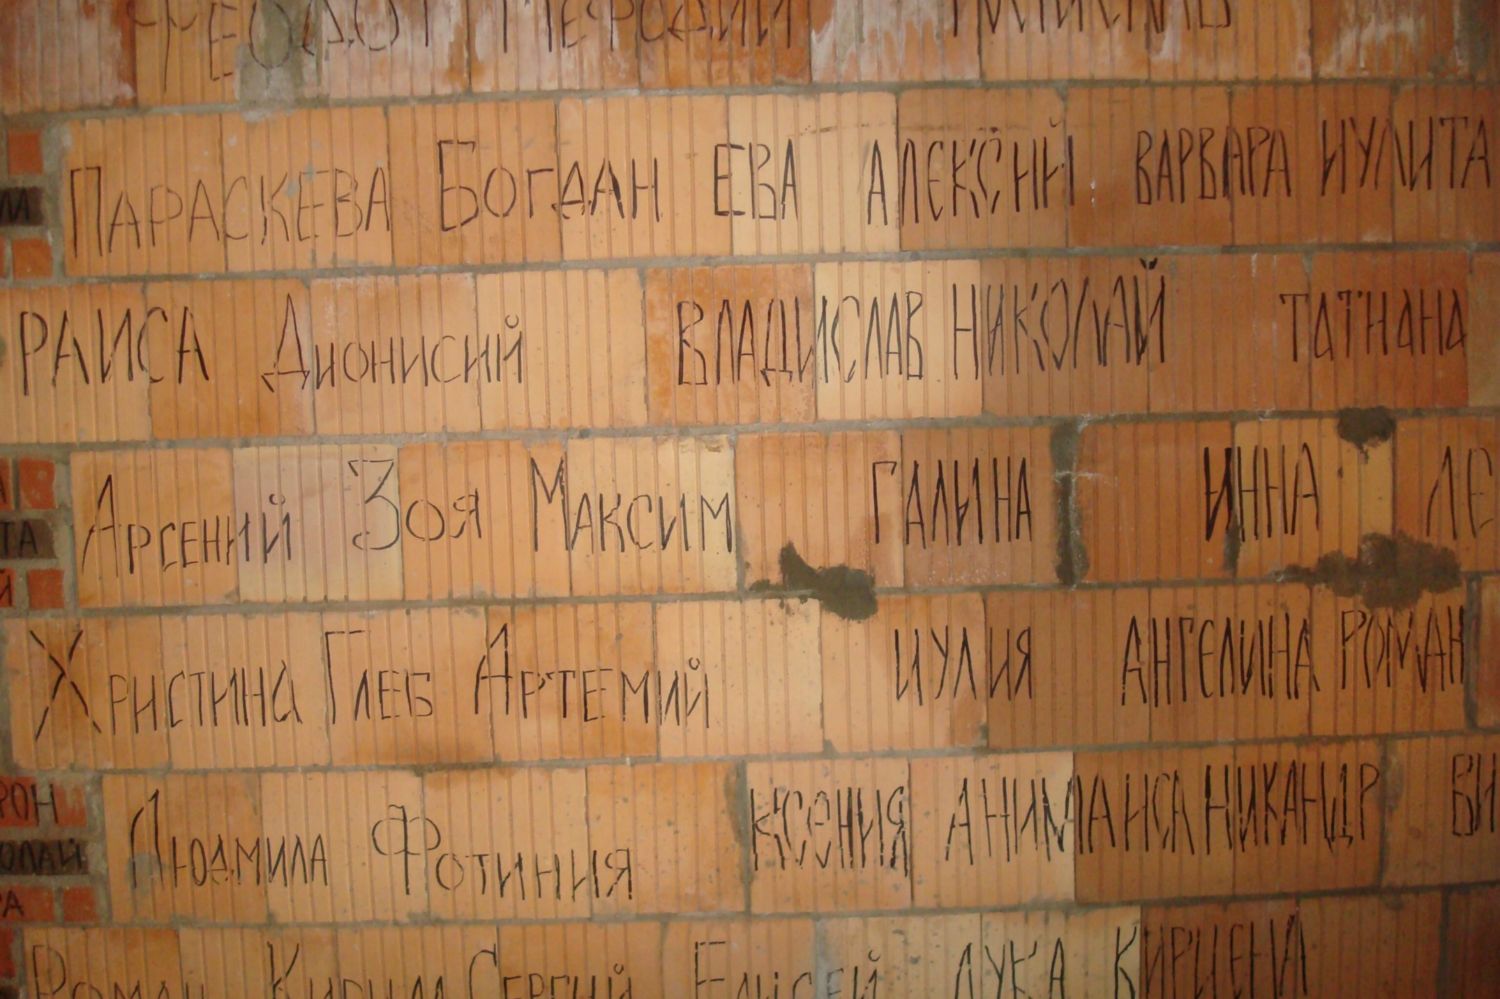 ФЕОДОТ МЕФОДИЙ
ПАРАСКЕВА БОГДАН ЕВА АЛЕКСИЙ ВАРВАРА ИУЛИТА
РАИСА ДИОНИСИЙ ВЛАДИСЛАВ НИКОЛАЙ ТАТИАНА
АРСЕНИЙ ЗОЯ МАКСИМ ГАЛИНА ИННА ЛЕ
ХРИСТИНА ГЛЕБ АРТЕМИЙ ИУЛИЯ АНГЕЛИНА РОМАН
ЛЮДМИЛА ФОТИНИЯ КСЕНИЯ АНИМАИСА НИКАНДР ВИ
РОМАН КИРИЛЛ СЕРГИЙ ЕЛИСЕЙ ЛУКА КИРИЕНА